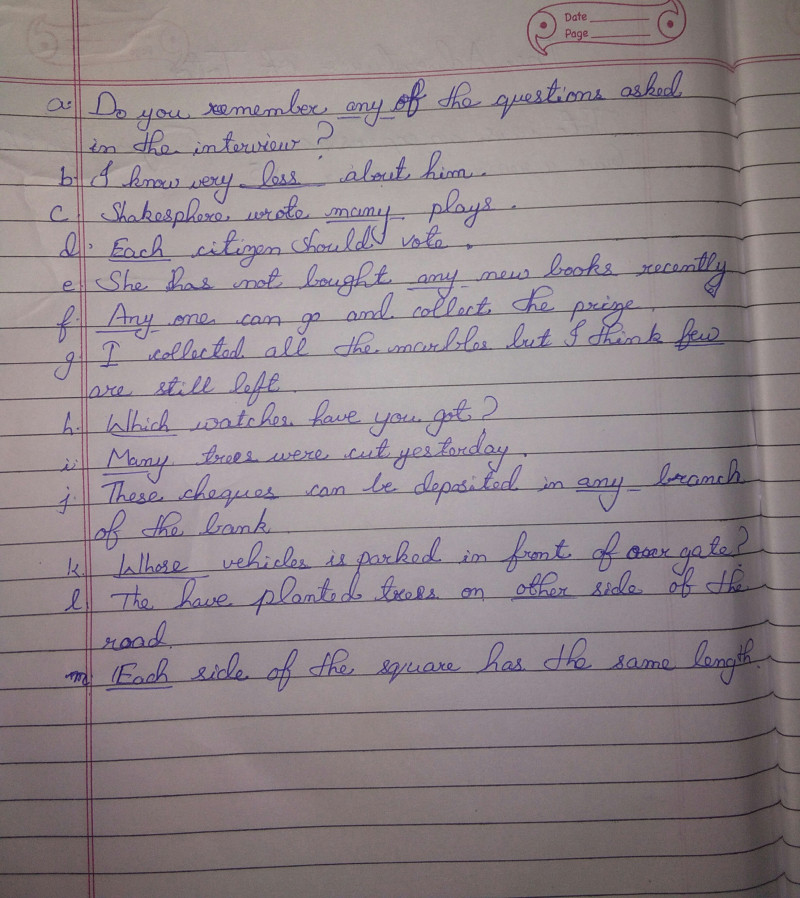 Date
Page
a. Do you remember any of the questions asked
in the interview?
b. I know very less about him.
c. Shakesphere wrote many plays.
d. Each citizen should vote.
e. She has not bought any new books recently
f. Any one can go and collect the prize.
g. I collected all the marbles but I think few
are still left.
h. Which watches have you got?
i. Many trees were cut yesterday.
j. These cheques can be deposited in any branch
of the bank
k. Whose vehicles is parked in front of our gate?
l. The have planted trees on other side of the
road.
m. Each side of the square has the same length.